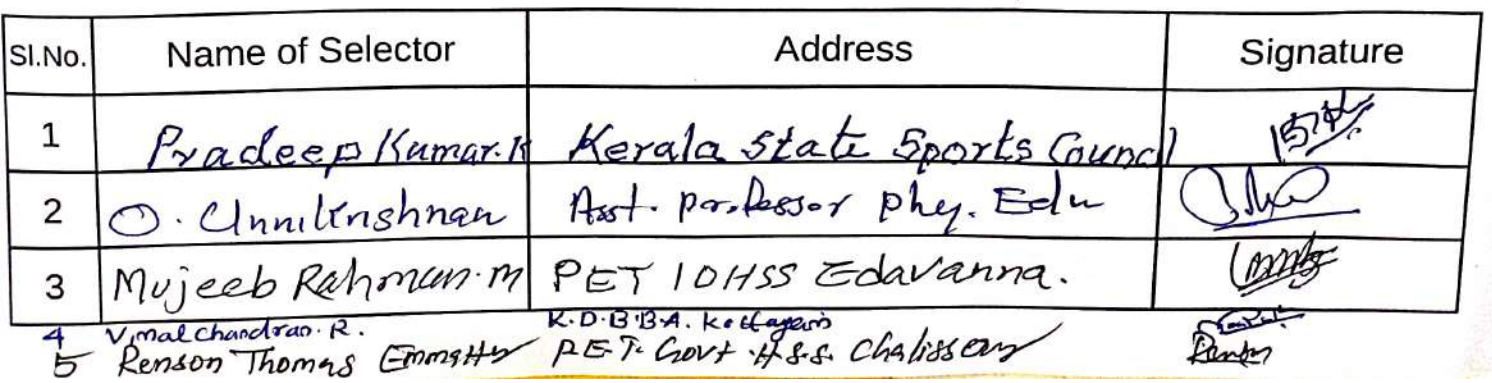 Sl.No. Name of Selector Address Signature
1 Pradeep Kumar.K Kerala State Sports Council
2 O. Unnikrishnan Asst. Professor Phy. Edu
3 Mujeeb Rahman.M PET IOHSS Edavanna.
4 Vimal Chandran. R. K.D.B.B.A. Kottayam
5 Renson Thomas PET. Govt. H.S.S. Chalissery